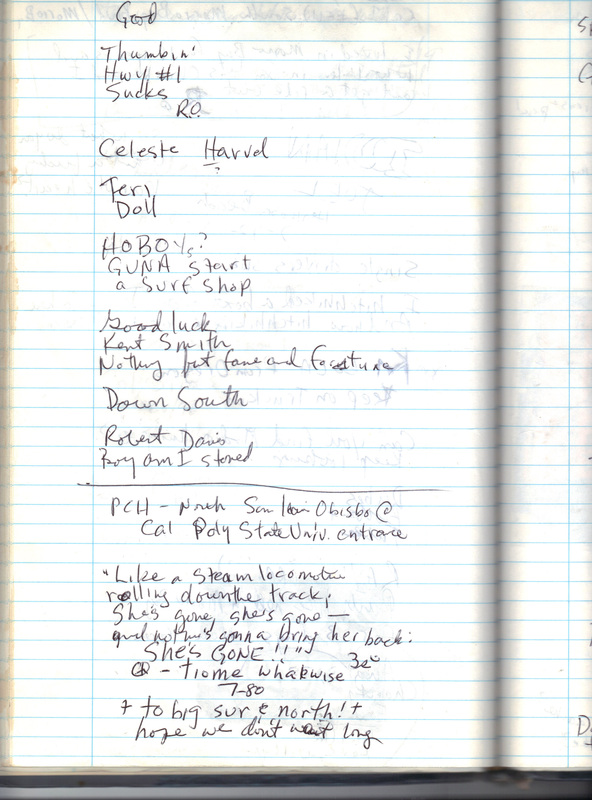 Good
Thumbin'
Hwy #1
Sucks
R.O.
Celeste Harvel
?
Teri
Doll
HOBOYs?
GUNA Start
a Surf Shop
Good luck
Kent Smith
Nothing but fame and fortune
Down South
Robert Davis
Boy am I stoned
PCH - North San Luis Obisbo @
Cal Poly State Univ. entrace
"Like a steam locomotive
rolling down the track;
She's gone, she's gone —
and nothin's gonna bring her back:
She's GONE!!"
- tiome whakwise
7-80
+ to big sur & north! +
hope we don't wait long